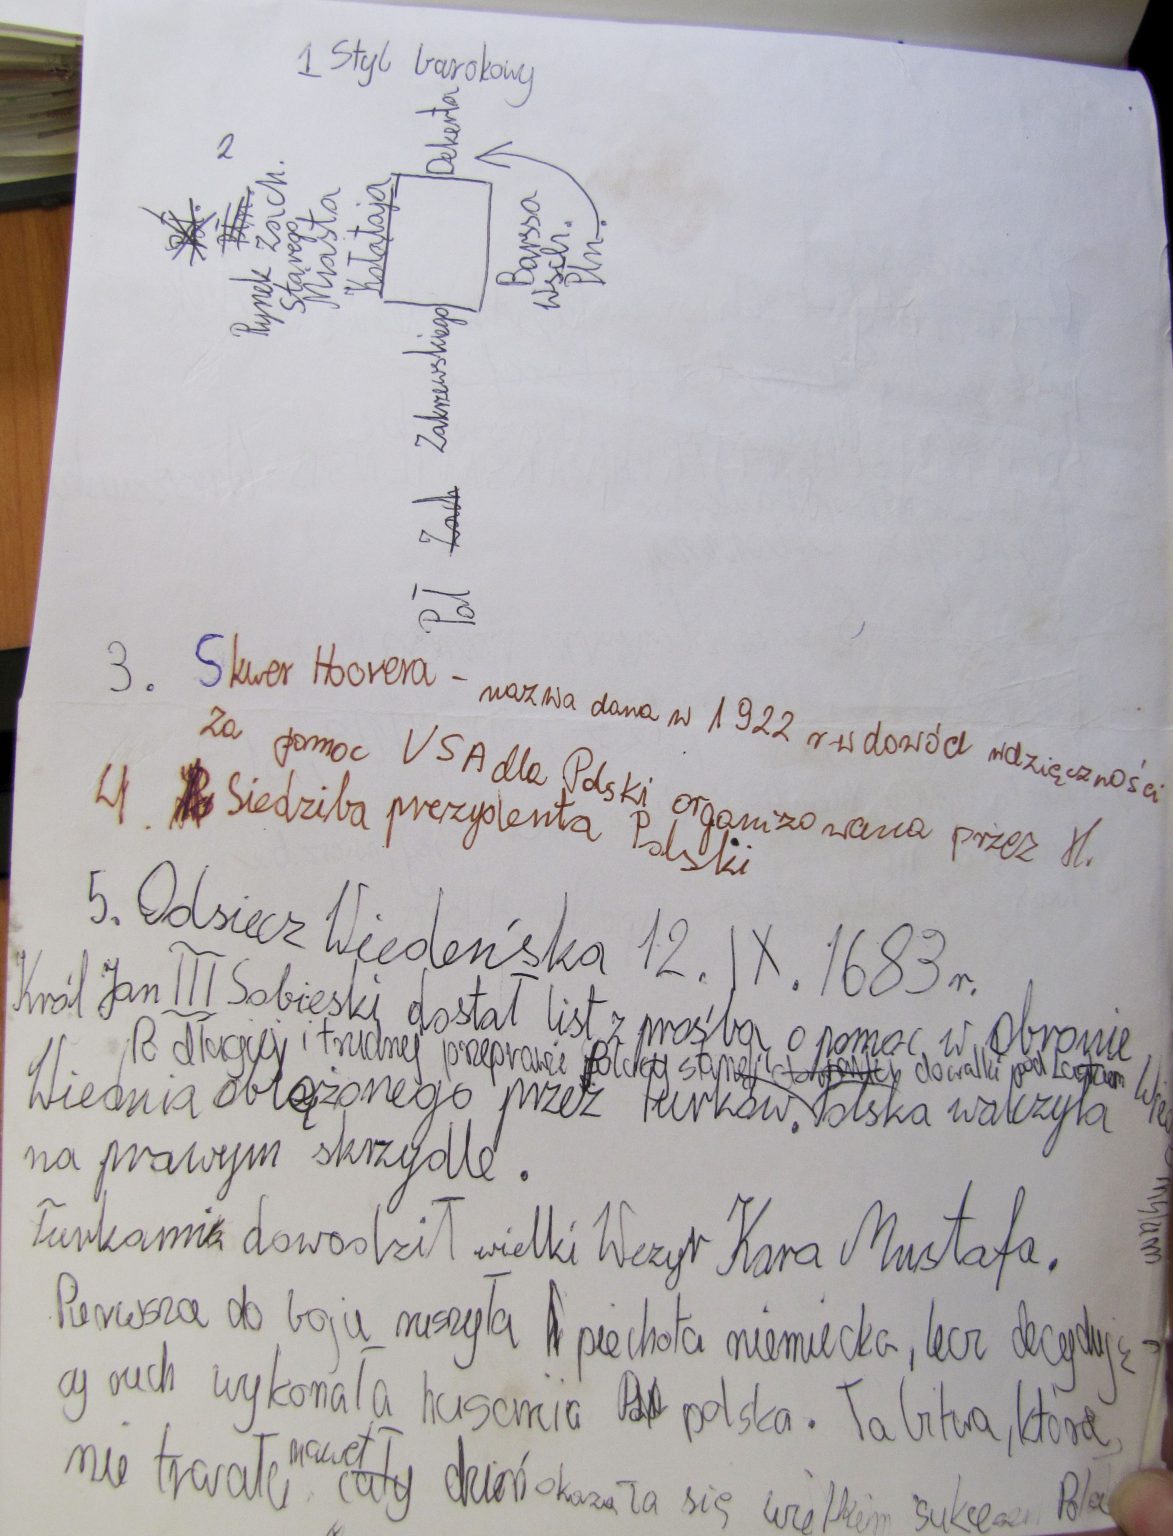 1 Styl barokowy
2
Rynek Zach.
Starego
Miasta
Kołątaja
Dekerta
Barssa
Wsch.
Płn.
Zakrzewskiego
Poł Zach
3. Skwer Hoovera - nazwa dana w 1922 r w dowód wdzięczności
za pomoc USA dla Polski organizowana przez H.
4. Siedziba prezydenta Polski
5. Odsiecz Wiedeńska 12. IX. 1683 r.
Król Jan III Sobieski dostał list z prośbą o pomoc w obronie
Po długiej i trudnej przeprawie Polacy stanęli do walki pod
Wiednia oblężonego przez Turków. Polska walczyła
na prawym skrzydle.
Turkami dowodził wielki Wezyr Kara Mustafa.
Pierwsza do boju ruszyła piechota niemiecka, lecz decydują
cy ruch wykonała husaria polska. Ta bitwa, która
nie trwała nawet cały dzień okazała się wielkim